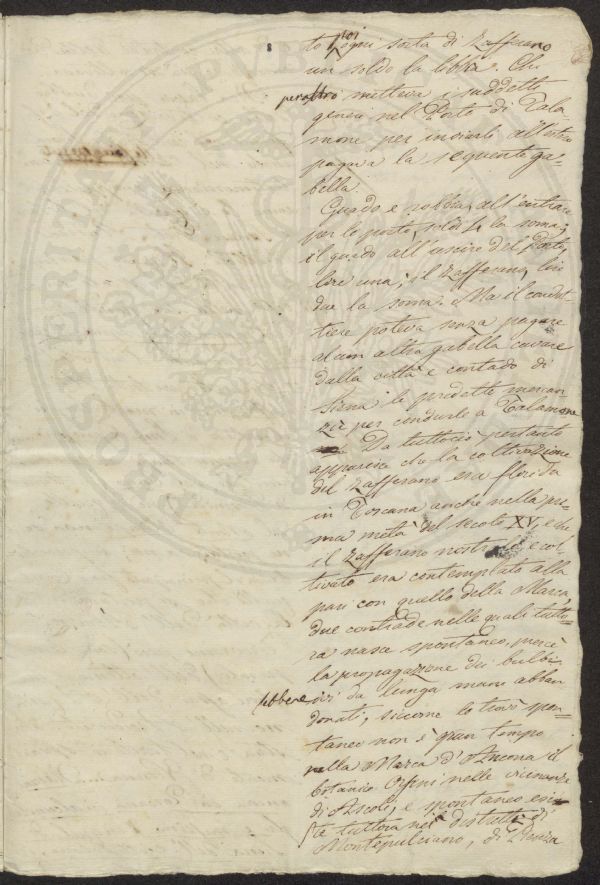 poi
to ogni sorta di Zafferano
un soldo la libbra. Chi
peraltro metteva i suddetti
generi nel Porto di Tala-
mone per inviarli all'estero
pagava la seguente ga-
bella.
Guado e robbia, all'entrare
per le porte, soldi la soma;
il guado all'uscire del Porto
lire una; il Zafferano, lire
due la soma. Ma il condut-
tiere poteva senza pagare
alcun altra gabella cavare
dalla città e contado di
Siena le predette mercan-
zie per condurle a Talamone
Da tuttociò pertanto
apparisce che la coltivazione
del Zafferano era florida
in Toscana anche nella pri-
ma metà del secolo XV, e che
il Zafferano nostrale e col-
tivato era contemplato alla
pari con quello della Marca,
due contrade nelle quali tutto-
ra nasce spontaneo, mercè
la propagazione dei bulbi
sebbene ivi da lunga mano abban
donati, siccome lo trovò spon-
taneo non è gran tempo
nella Marca d'Ancona il
botanico Orsini nelle vicinanze
di Ascoli, e spontaneo esis-
te tuttora nel distretto di
Montepulciano, di Pienza
PROSPERITATI PUB